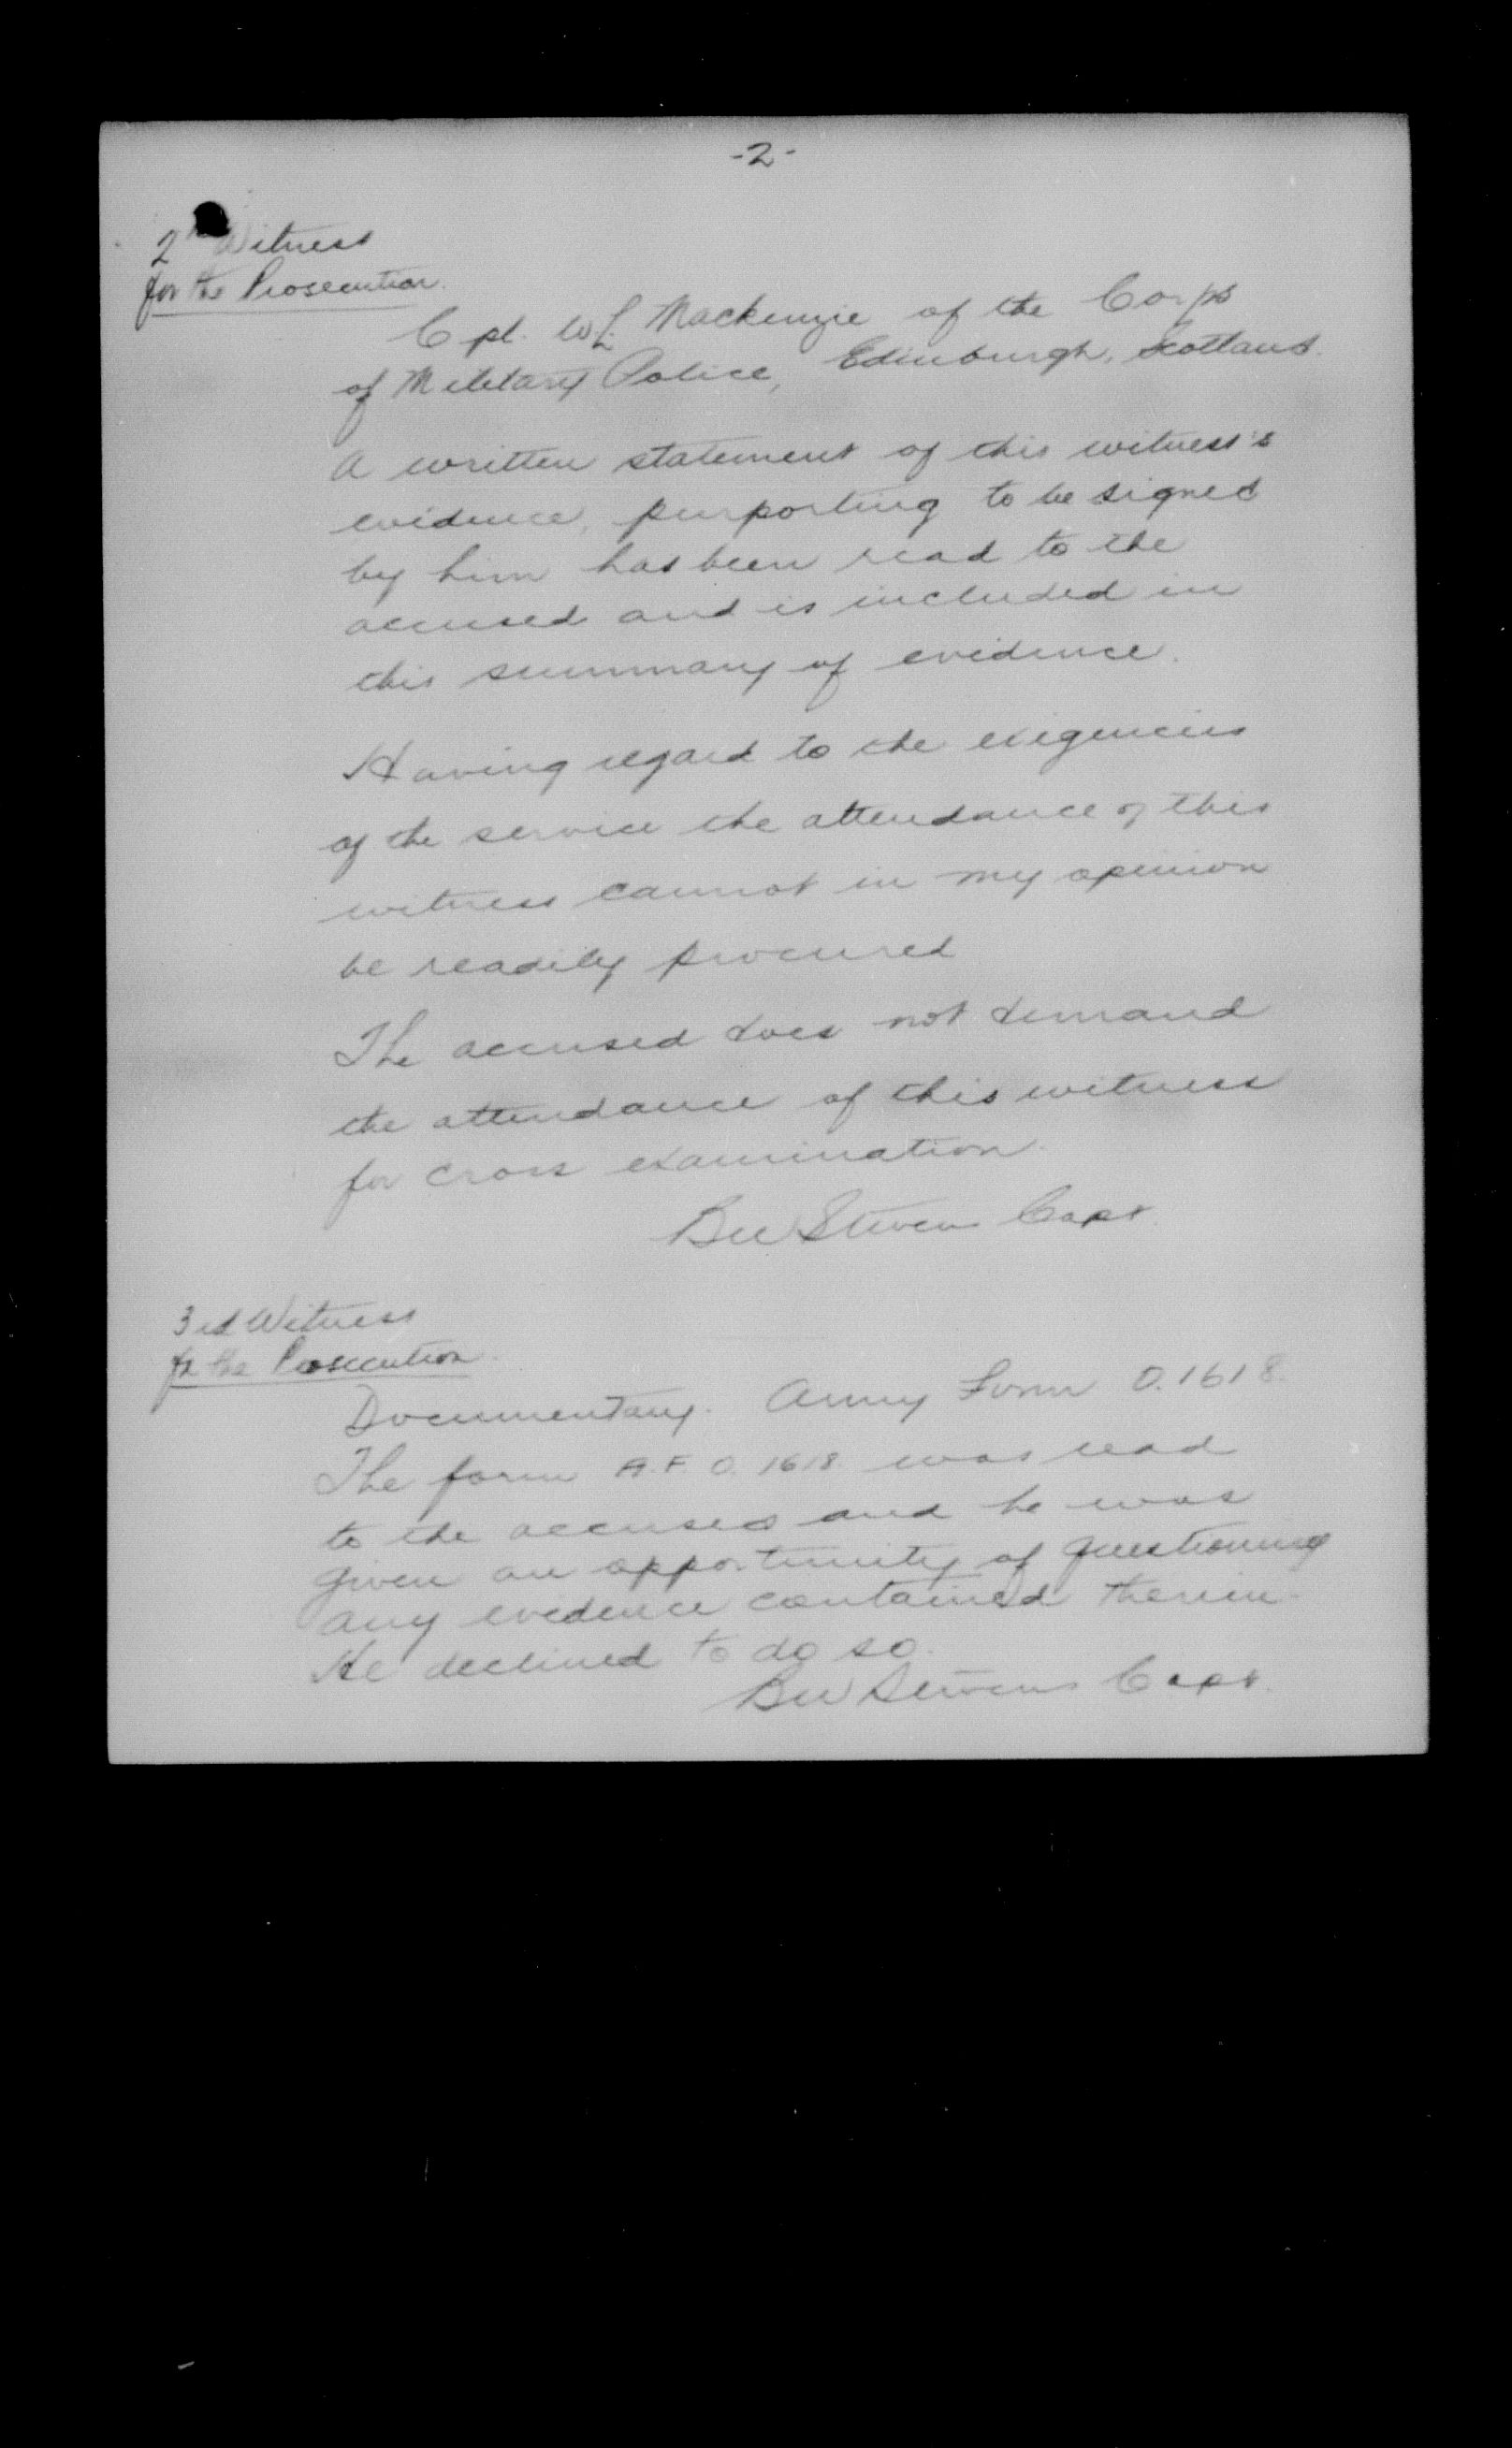 -2-
2nd Witness
for the Prosecution.
Cpl. W.L. Mackenzie of the Corps
of Military Police, Edinburgh, Scotland.
A written statement of this witness's
evidence, purporting to be signed
by him has been read to the
accused and is included in
this summary of evidence.
Having regard to the exigencies
of the service the attendance of this
witness cannot in my opinion
be readily procured
The accused does not demand
the attendance of this witness
for cross examination.
Stevens Capt.
3rd Witness
for the Prosecution.
Documentary. Army Form O.1618.
The form A.F. O. 1618. was read
to the accused and he was
given an opportunity of questioning
any evidence contained therein.
He declined to do so.
Stevens Capt.